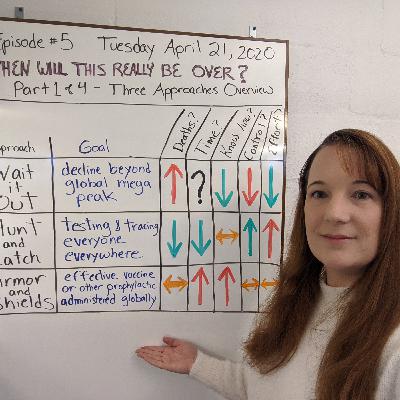 Episode #5 Tuesday April 21, 2020
WHEN WILL THIS REALLY BE OVER?
Part 1 of 4 - Three Approaches Overview
Approach Goal Deaths? Time? Know how? Control? Effort?
Wait it Out
decline beyond
global mega
peak
?
Hunt and Catch
testing & tracing
everyone
everywhere
Armor and Shields
effective vaccine
or other prophylactic
administered globally